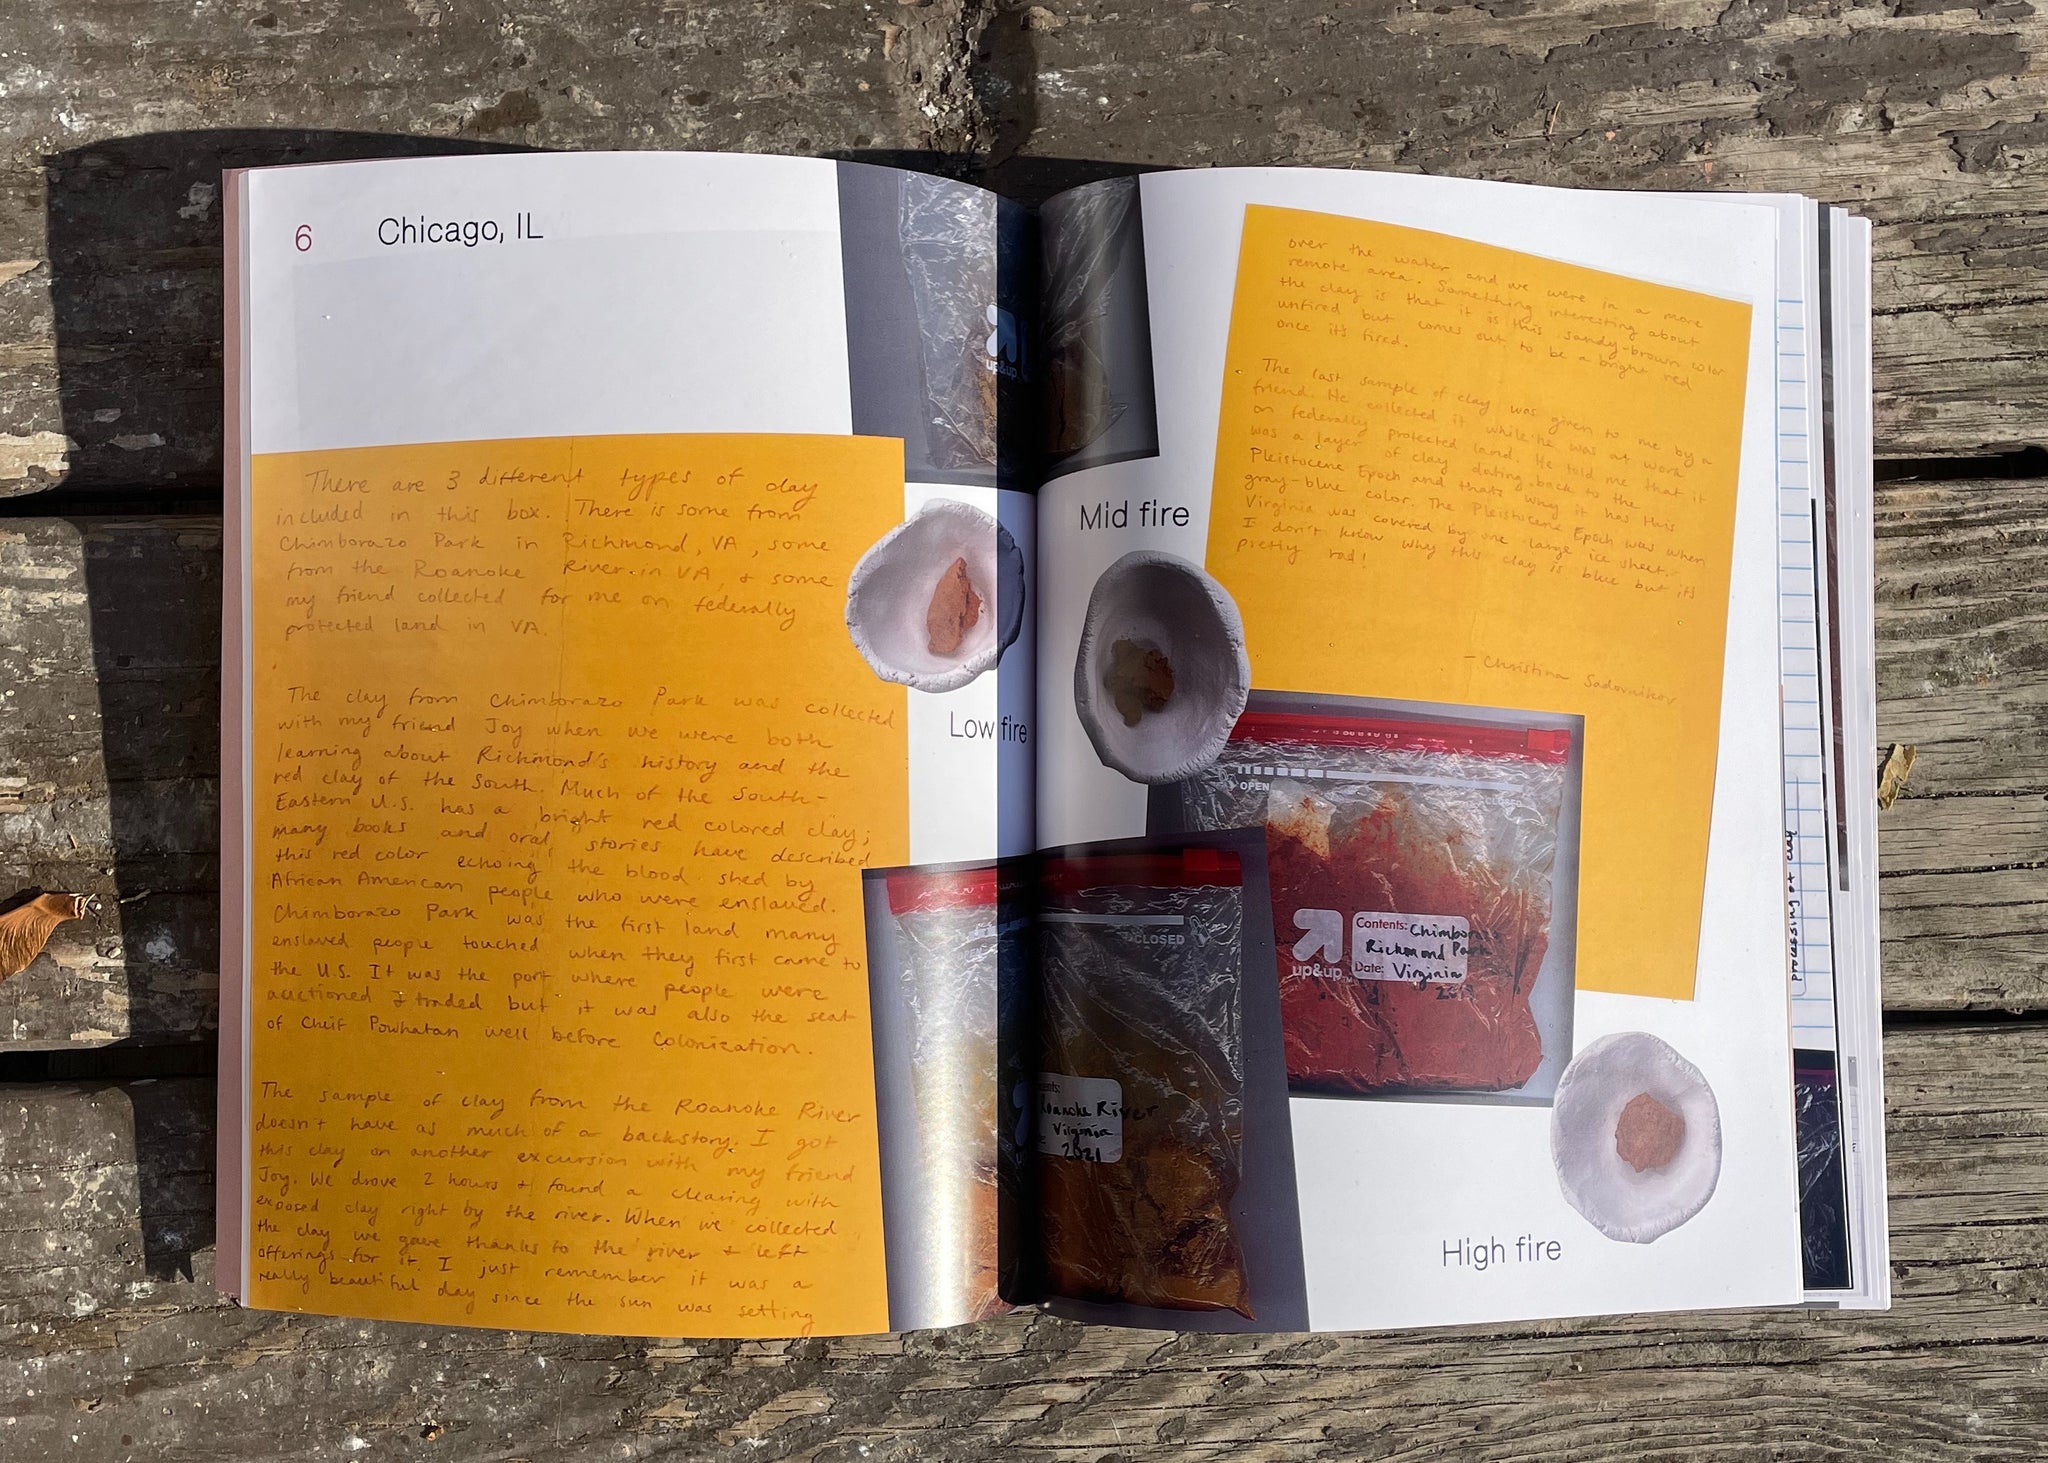 6
Chicago, IL
There are 3 different types of clay
included in this box. There is some from
Chimborazo Park in Richmond, VA, some
from the Roanoke River in VA, & some
my friend collected for me on federally
protected land in VA.
The clay from Chimborazo Park was collected
with my friend Joy when we were both
learning about Richmond's history and the
red clay of the South. Much of the South-
Eastern U.S. has a bright red colored clay;
many books and oral stories have described
this red color echoing the blood shed by
African American people who were enslaved.
Chimborazo Park was the first land many
enslaved people touched when they first came to
the U.S. It was the port where people were
auctioned & traded but it was also the seat
of Cheif Powhatan well before Colonization.
The sample of clay from the Roanoke River
doesn't have as much of a backstory. I got
this clay on another excursion with my friend
Joy. We drove 2 hours & found a clearing with
exposed clay right by the river. When we collected
the clay we gave thanks to the river & left
offerings for it. I just remember it was a
really beautiful day since the sun was setting
up&up
Low fire
Mid fire
over the water and we were in a more
remote area. Something interesting about
the clay is that it is this sandy-brown color
unfired but comes out to be a bright red
once it's fired.
The last sample of clay was given to me by a
friend. He collected it while he was at work
on federally protected land. He told me that it
was a layer of clay dating back to the
Pleistocene Epoch and thats why it has this
gray-blue color. The Pleistocene Epoch was when
Virginia was covered by one large ice sheet.
I don't know why this clay is blue but it's
pretty rad!
- Christina Sadovnikov
OPEN
CLOSED
up&up
Contents: Chimborazo
Richmond Park
Date: Virginia
CLOSED
Roanoke River
Virginia
2021
High fire
processing of clay